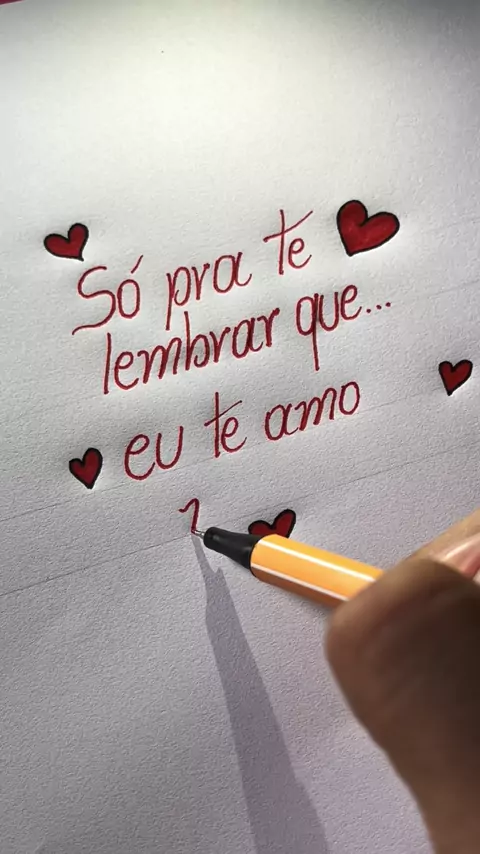 Só pra te
lembrar que...
eu te amo